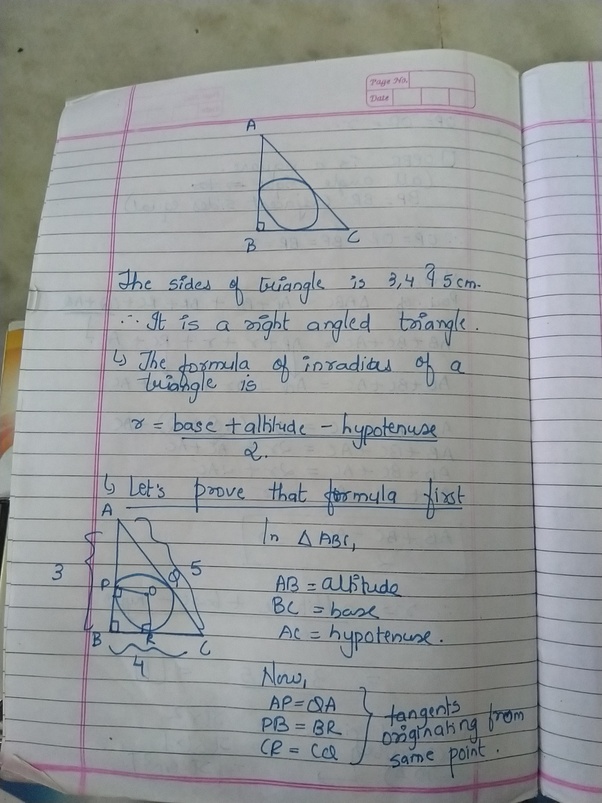 Page No.
Date
A
B
C
The sides of triangle is 3,4 & 5 cm.
∴ It is a right angled triangle.
↳ The formula of inradius of a
triangle is
r = base + altitude - hypotenuse
2.
↳ Let's prove that formula first
A
In △ ABC,
3
5
P
O
Q
AB = altitude
BC = base
B
R
C
AC = hypotenuse.
4
Now,
AP = QA
PB = BR
CR = CQ
tangents
originating from
same point.